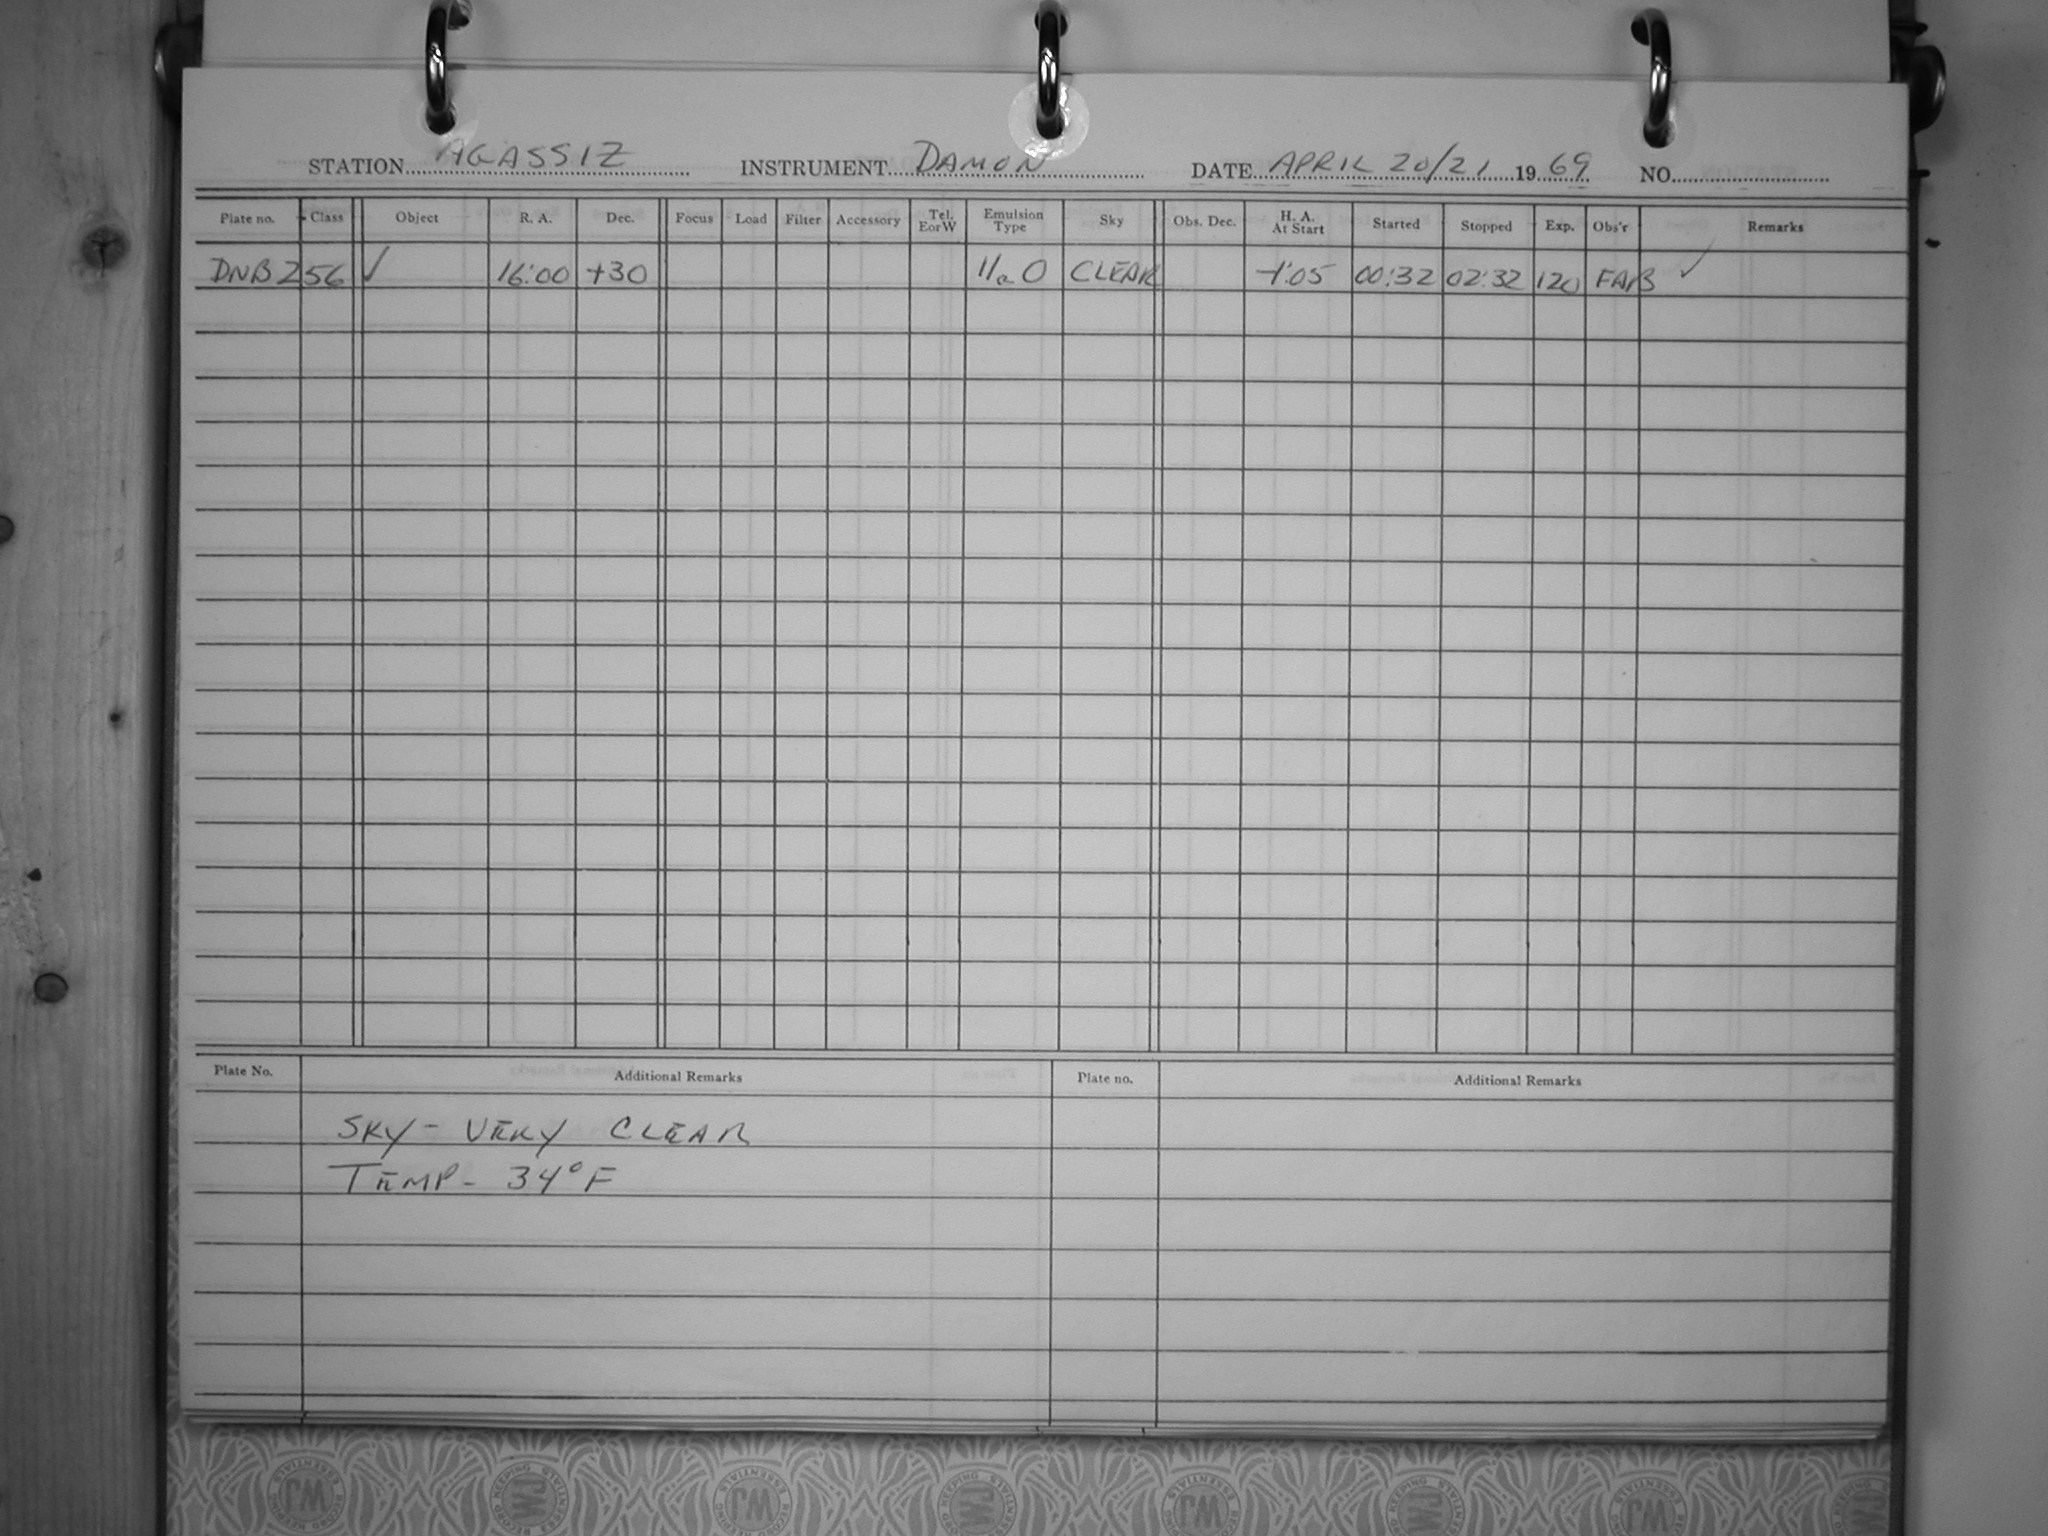 STATION AGASSIZ INSTRUMENT DAMON DATE APRIL 20/21 19 69 NO.
Plate no. Class Object R. A. Dec. Focus Load Filter Accessory Tel. E or W Emulsion Type Sky Obs. Dec. H. A. At Start Started Stopped Exp. Obs'r Remarks
DNB 256 ✓ 16:00 +30 IIaO CLEAR -1:05 00:32 02:32 120 FAB ✓
Plate No. Additional Remarks Plate no. Additional Remarks
SKY - VERY CLEAR
TEMP - 34°F